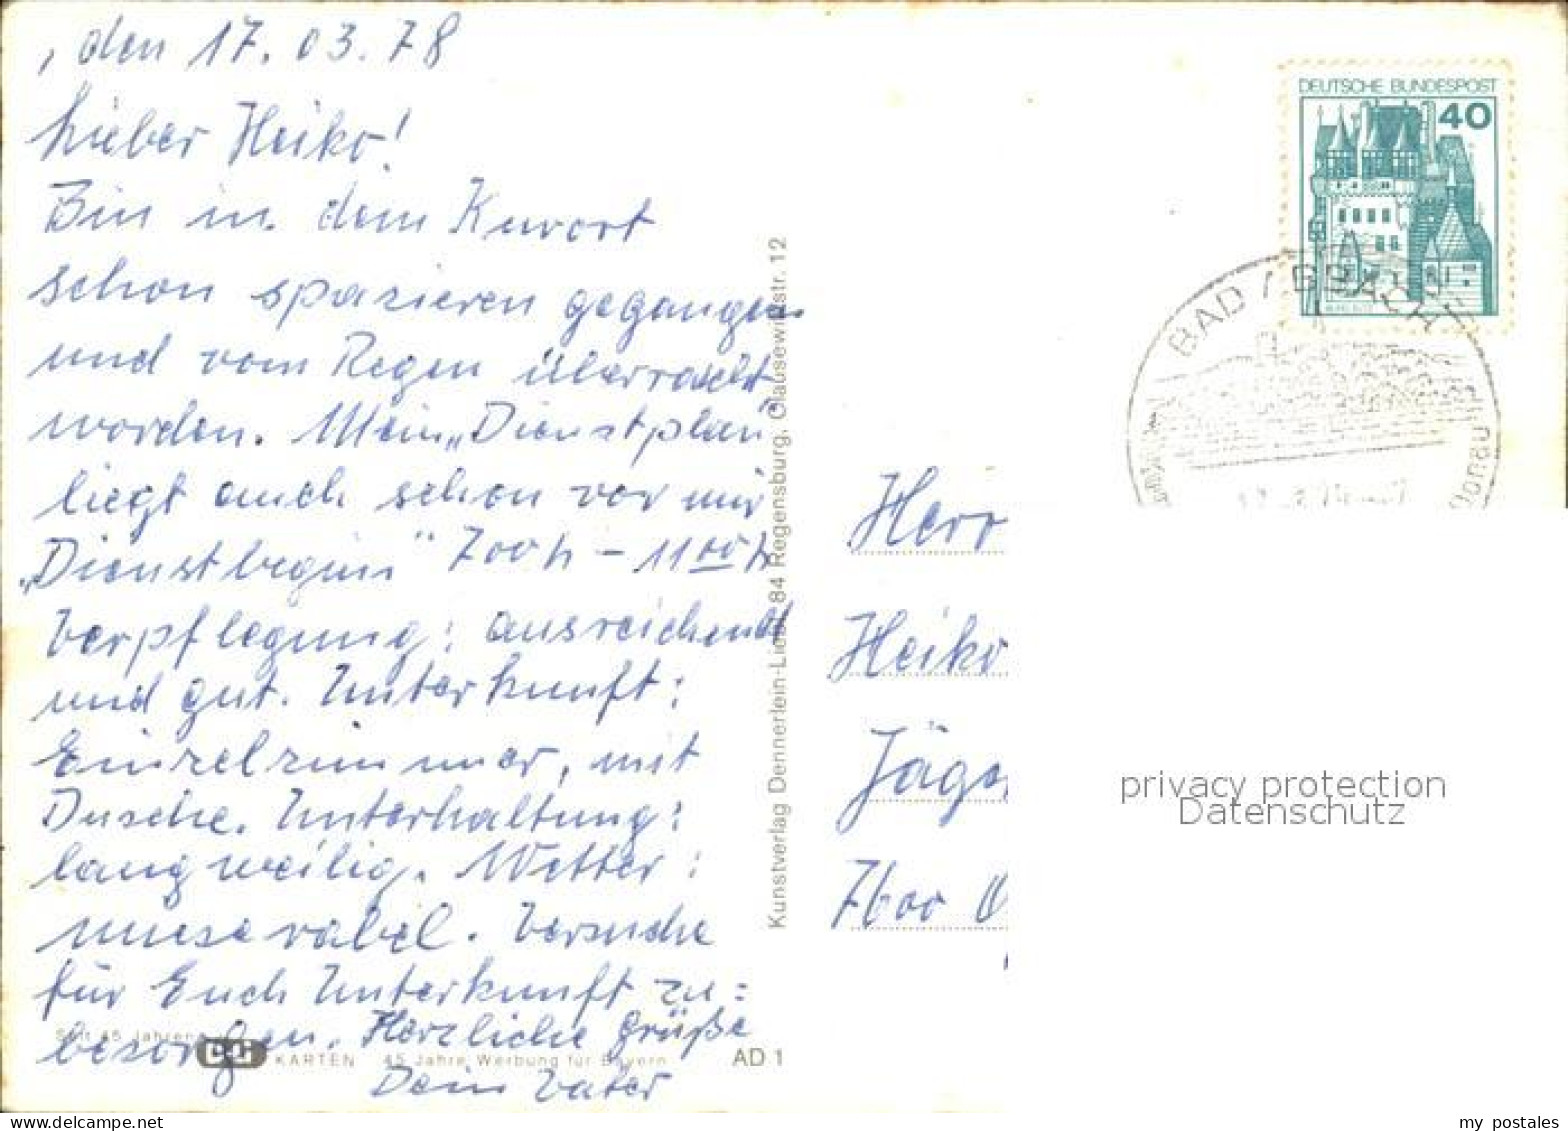 , den 17.03.78
Lieber Heiko!
Bin in dem Kurort
schon spazieren gegangen
und vom Regen überrascht
worden. Mein „Dienstplan"
liegt auch schon vor mir
„Dienstbeginn" 700 h - 1100 h
Verpflegung: ausreichend
und gut. Unterkunft:
Einzelzimmer, mit
Dusche. Unterhaltung:
langweilig. Wetter:
miserabel. Versuche
für Euch Unterkunft zu=
besorgen. Herzliche Grüße
Dein Vater
Seit 45 Jahren
KARTEN 45 Jahre Werbung für Bayern
AD 1
Kunstverlag Dennerlein-Lieb, 84 Regensburg, Clausewitzstr. 12
DEUTSCHE BUNDESPOST
40
BAD ABBACH
Donau
Herr
Heiko
Jäger
7600 O
privacy protection
Datenschutz
my_postales